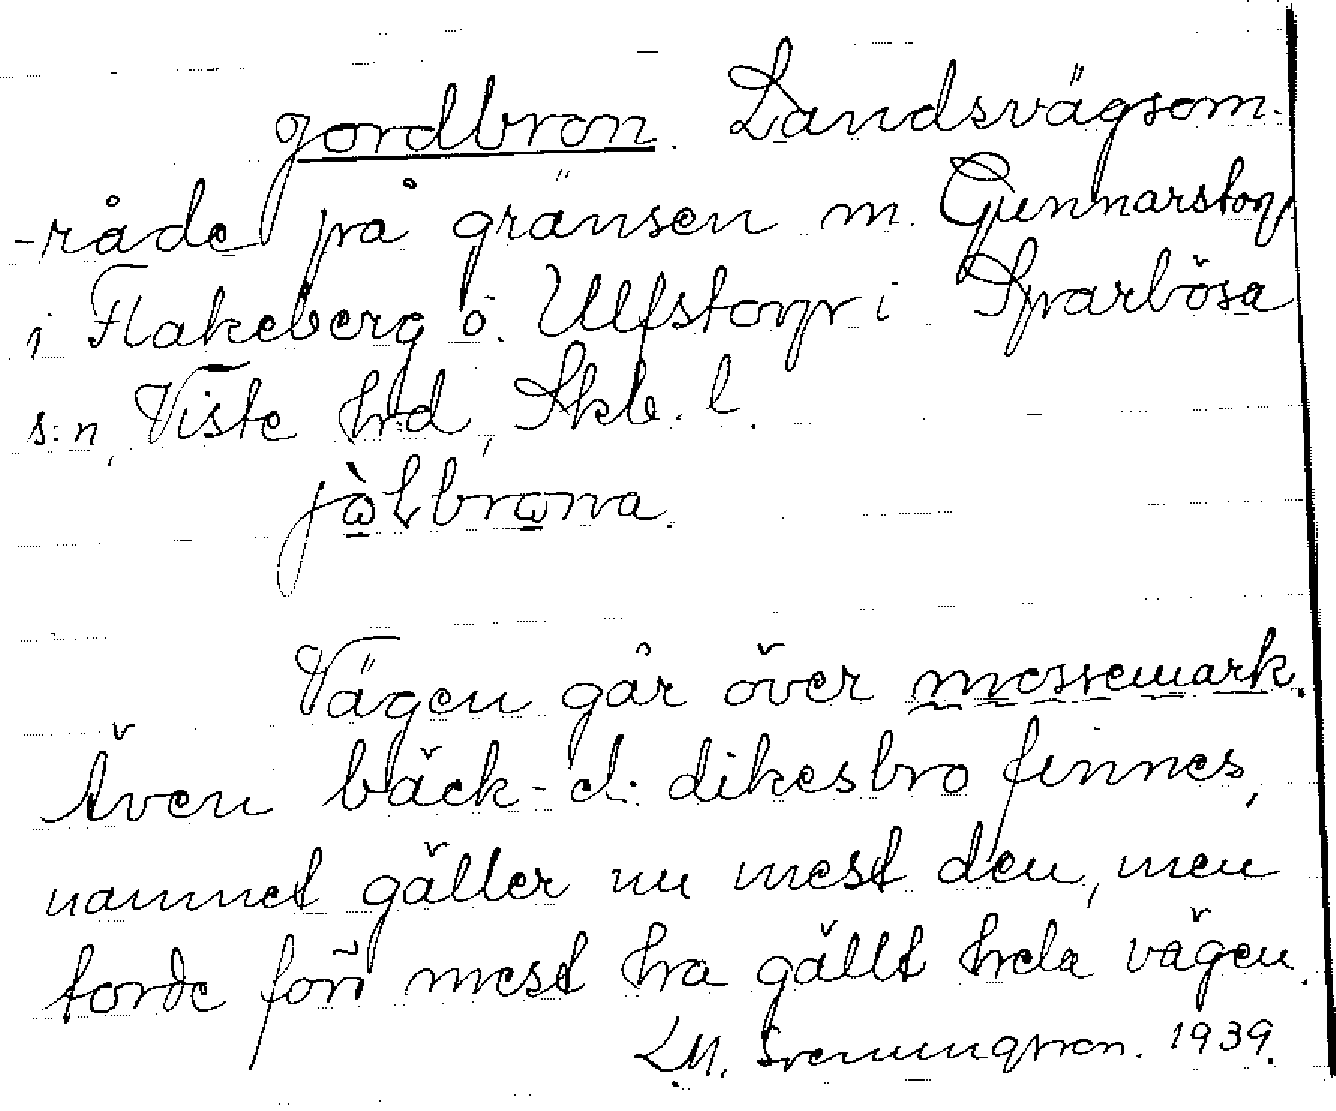 Jordbron. Landsvägsom-
-råde på gränsen m. Gunnarstorp
i Flakeberg o. Ulfstorp i Sparlösa
s:n, Viste hrd, Skb. l.
Vägen går över mossemark.
Även bäck- el. dikesbro finnes,
namnet gäller nu mest den, men
torde förr mest ha gällt hela vägen.
L.M. Svenungsson. 1939.